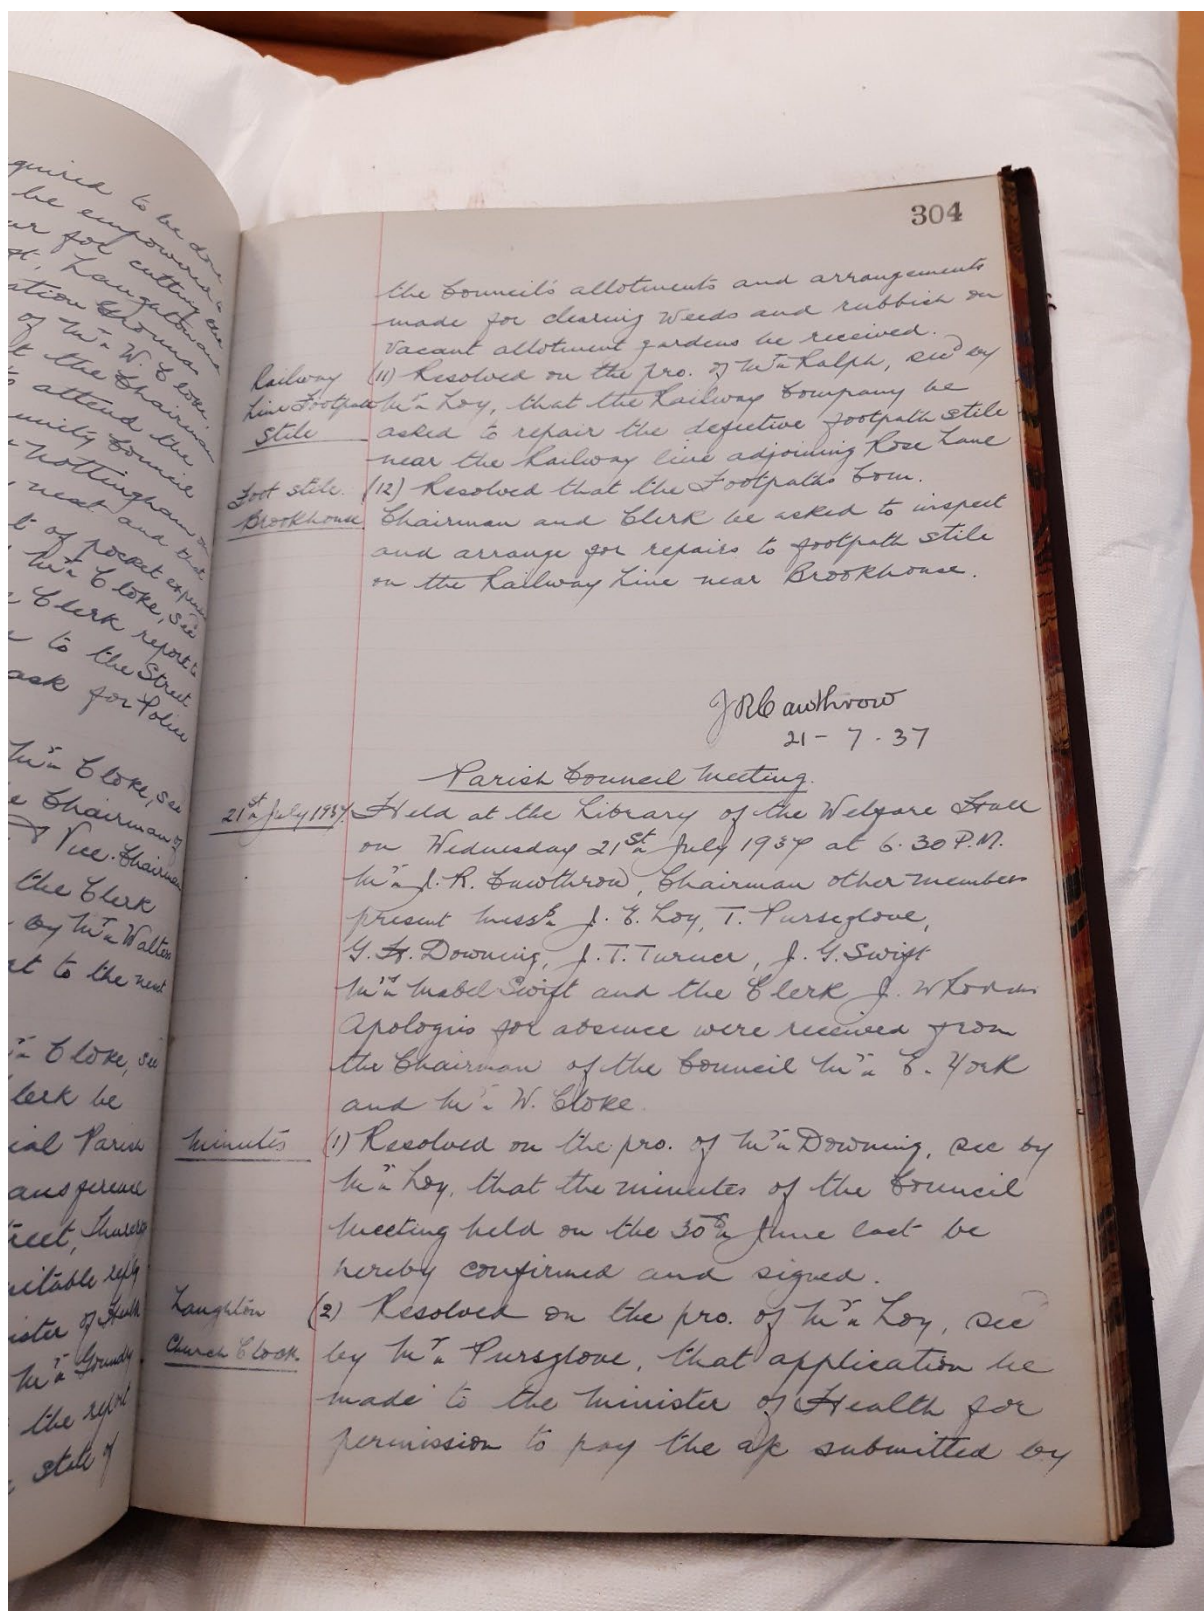 quired to be done
be empowered to
ur for cutting the
st, Laughton and
ation Grounds
of Mr W. Cloke,
t the Chairman
to attend the
unity Council
Nottingham on
next and that
t of pocket expenses
Mr Cloke, sec
Clerk report to
to the Street
ask for Police
Mr Cloke, sec
e Chairman of
Vice-Chairman
the Clerk
by Mr Walters
rt to the next
Cloke, sec
lerk be
ial Parish
ansference
reet, Thurcroft
uitable reply
ister of Health
Mr Grundy
the report
state of
304
the Council's allotments and arrangements
made for clearing weeds and rubbish on
vacant allotment gardens be received.
Railway
Line Footpath
Stile
(11) Resolved on the pro. of Mr Ralph, sec'd by
Mr Loy, that the Railway Company be
asked to repair the defective footpath stile
near the Railway line adjoining Rose Lane
Foot Stile.
Brookhouse
(12) Resolved that the Footpaths Com.
Chairman and Clerk be asked to inspect
and arrange for repairs to footpath stile
on the Railway Line near Brookhouse.
J R Cawthrow
21-7-37
Parish Council Meeting.
21st July 1937.
Held at the Library of the Welfare Hall
on Wednesday 21st July 1937 at 6.30 P.M.
Mr J. R. Cawthrow, Chairman other members
present Messrs J. E. Loy, T. Purseglove,
G. H. Downing, J. T. Turner, J. G. Swift
Mrs Mabel Swift and the Clerk J. W.
Apologies for absence were received from
the Chairman of the Council Mr E. York
and Mr W. Cloke.
Minutes
(1) Resolved on the pro. of Mr Downing, sec by
Mr Loy, that the minutes of the Council
Meeting held on the 30th June last be
hereby confirmed and signed.
Laughton
Church Clock.
(2) Resolved on the pro. of Mr Loy, sec
by Mr Pursglove, that application be
made to the Minister of Health for
permission to pay the a/c submitted by